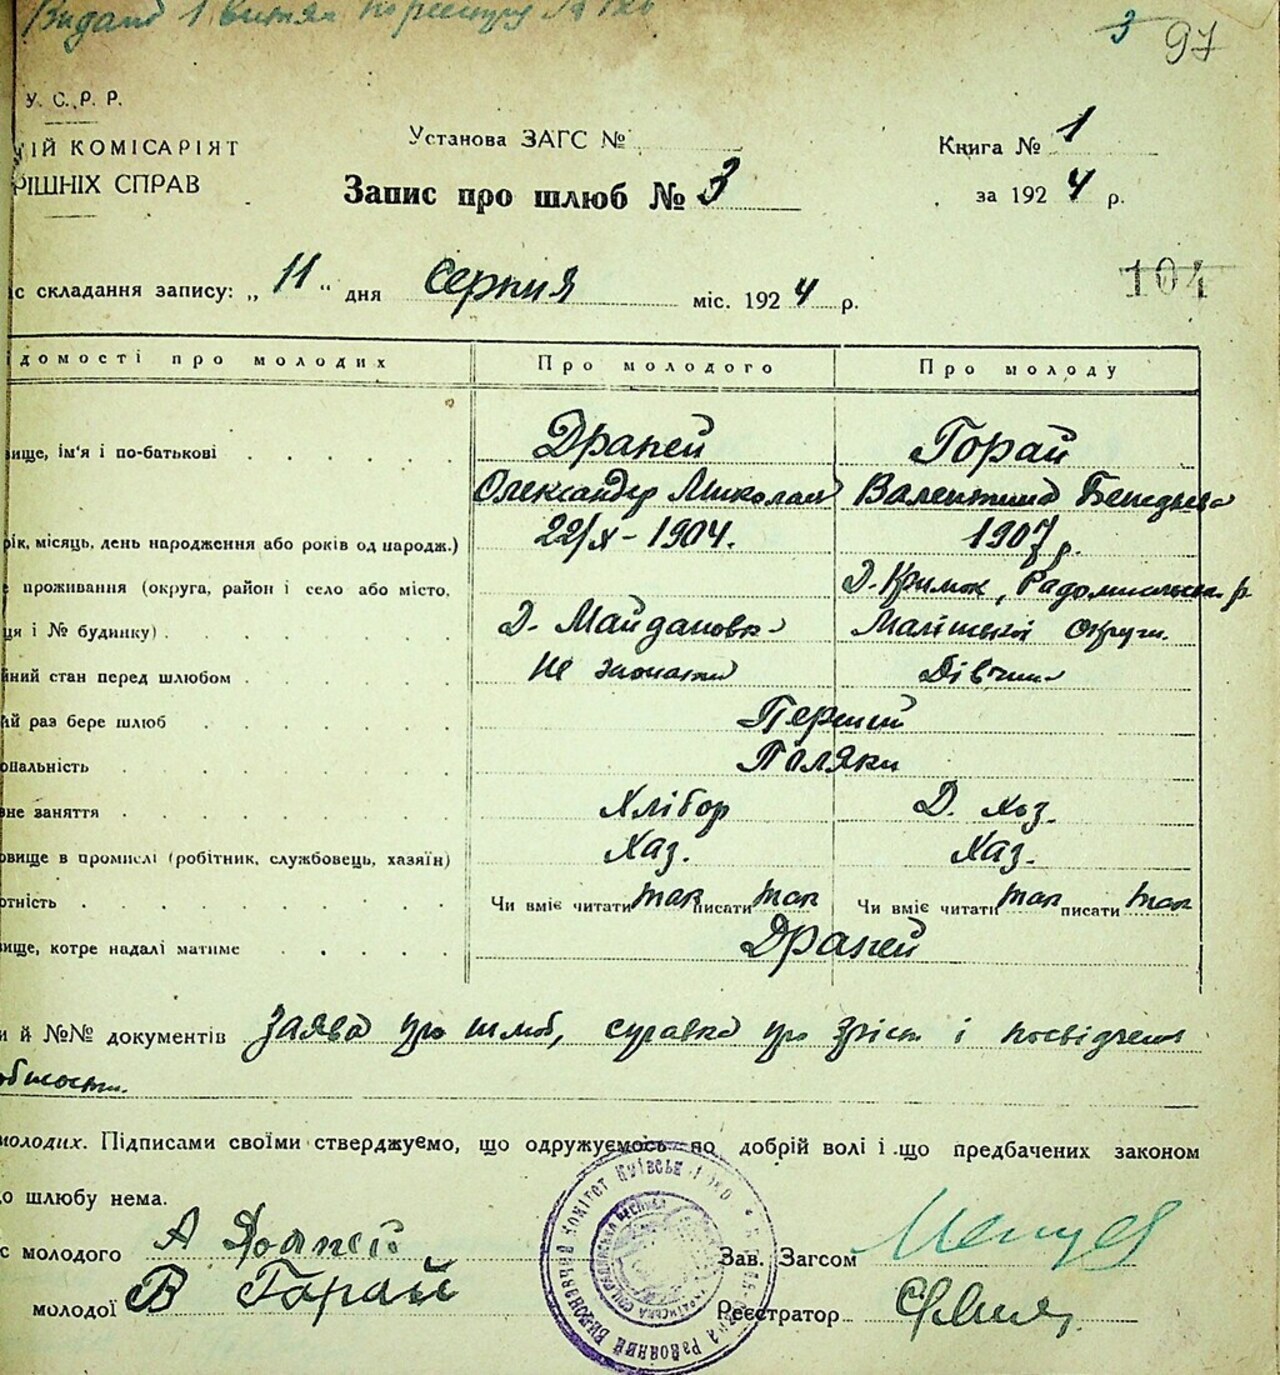 Видано 1 витяг
3 97
У. С. Р. Р.
ИЙ КОМІСАРІЯТ
РІШНІХ СПРАВ
Установа ЗАГС №
Книга № 1
Запис про шлюб № 3
за 1924 р.
104
с складання запису: „11“ дня серпня міс. 1924 р.
ідомості про молодих Про молодого Про молоду
вище, ім'я і по-батькові Драпей Горай
Олександр Миколай Валентина
рік, місяць, день народження або років од народж.) 22/X – 1904. 1907 р.
е проживання (округа, район і село або місто, Д. Кримок, Радомисльськ. р.
ця і № будинку) Д. Майдановка Малінської округи.
йний стан перед шлюбом Не жонатий Дівчина
ий раз бере шлюб Перший
ональність Поляки
вне заняття Хлібор Д. хоз.
овище в промислі (робітник, службовець, хазяїн) Хаз. Хаз.
отність Чи вміє читати так писати так Чи вміє читати так писати так
вище, котре надалі матиме Драпей
и й №№ документів Заява про шлюб, справка про зріст і посвідчення
молодих. Підписами своїми стверджуємо, що одружуємось по добрій волі і що предбачених законом
о шлюбу нема.
с молодого А Драпей Зав. Загсом
молодої В Горай Реєстратор